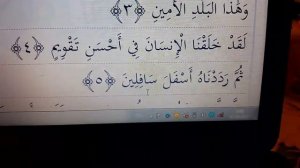 وَهَٰذَا الْبَلَدِ الْأَمِينِ ﴿٣﴾
لَقَدْ خَلَقْنَا الْإِنسَانَ فِي أَحْسَنِ تَقْوِيمٍ ﴿٤﴾
ثُمَّ رَدَدْنَاهُ أَسْفَلَ سَافِلِينَ ﴿٥﴾